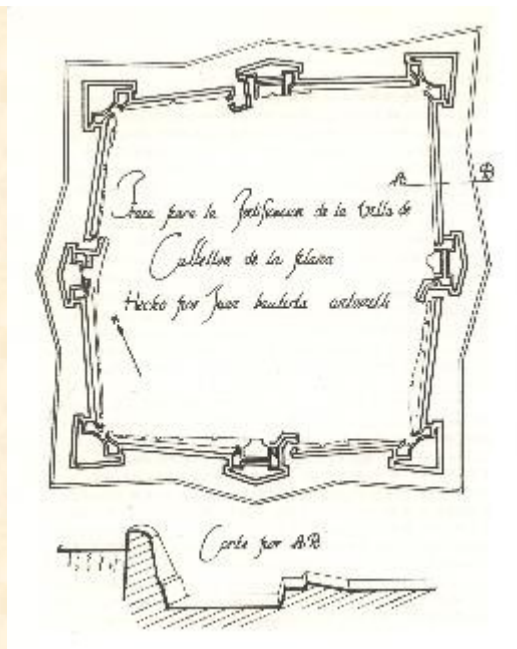 Traza para la Fortificacion de la Villa de
Castellon de la plana
Hecho por Juan bautista antonelli
A B
Corte por AB